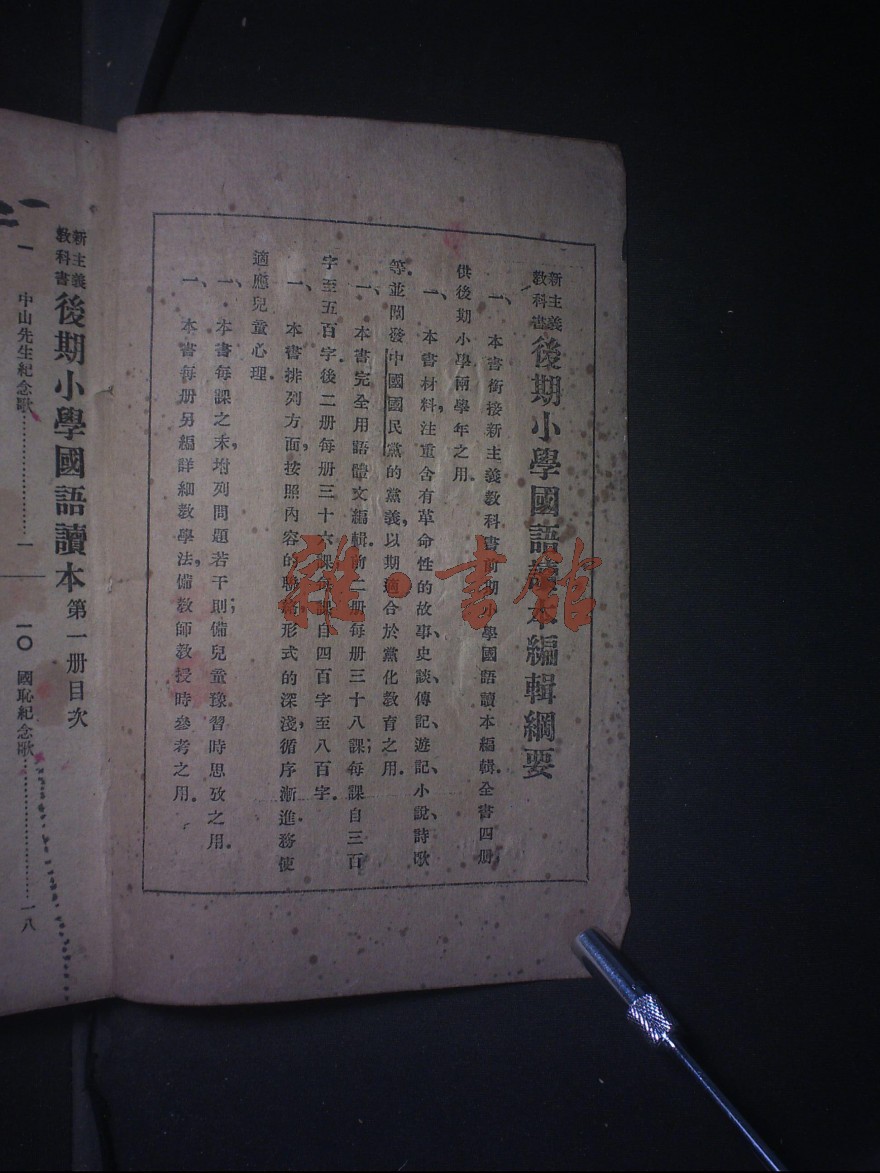 新主義
教科書
後期小學國語讀本編輯綱要
一、本書銜接新主義教科書前期小學國語讀本編輯,全書四册,
供後期小學兩學年之用。
一、本書材料,注重含有革命性的故事、史談、傳記、遊記、小說、詩歌
等,並闡發中國國民黨的黨義,以期適合於黨化教育之用。
一、本書完全用語體文編輯。前二册每册三十八課,每課自三百
字至五百字;後二册每册三十六課,每課自四百字至八百字。
一、本書排列方面,按照內容的聯絡,形式的深淺,循序漸進,務使
適應兒童心理。
一、本書每課之末,坿列問題若干則,備兒童豫習時思攷之用。
一、本書每册另編詳細教學法,備教師教授時參考之用。
新主義
教科書
後期小學國語讀本 第一册目次
一 中山先生紀念歌……………一
一〇 國恥紀念歌……………一八
雜·書館